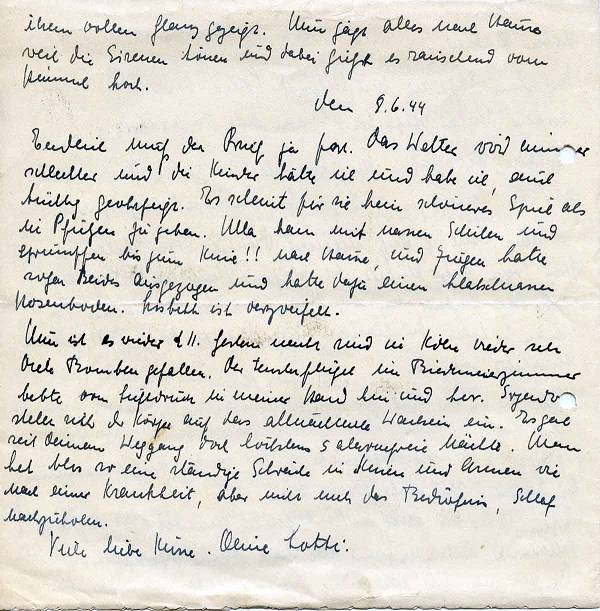 ihrem vollen Glanz gezeigt. Nun jagt alles nach Hause
weil die Sirenen tönen und dabei gießt es rauschend vom
Himmel hoch.
den 9.6.44
Endlich muß der Brief ja fort. Das Wetter wird immer
schlechter und die Kinder hätte ich und habe ich, auch
tüchtig geohrfeigt. Es scheint für sie kein schöneres Spiel als
in Pfützen zu gehen. Ulla kam mit nassen Schuhen und
Strümpfen bis zum Knie!! nach Hause, und Jürgen hatte
sogar Beides ausgezogen und hatte dafür einen klatschnassen
Hosenboden. Lisbeth ist verzweifelt.
Nun ist es wieder 11. Gestern nacht sind in Köln wieder sehr
viele Bomben gefallen. Der Fensterflügel im Biedermeierzimmer
bebte vom Luftdruck in meiner Hand hin und her. Irgendwo
stellt sich der Körper auf das allnächtliche Wachsein ein. Es gab
seit Deinem Weggang doch höchstens 5 alarmfreie Nächte. Man
hat blos so eine ständige Schwäche in Knien und Armen wie
nach einer Krankheit, aber nicht mehr das Bedürfnis, Schlaf
nachzuholen.
Viele liebe Küsse. Deine Lotti.